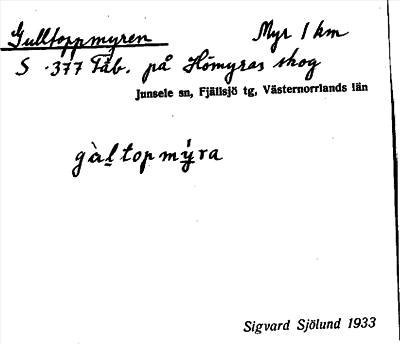 Gulltoppmyren Myr 1 km
S .377 Fäb. på Hömyras skog
Junsele sn, Fjällsjö tg, Västernorrlands län
gàl̲topmý̲ra
Sigvard Sjölund 1933